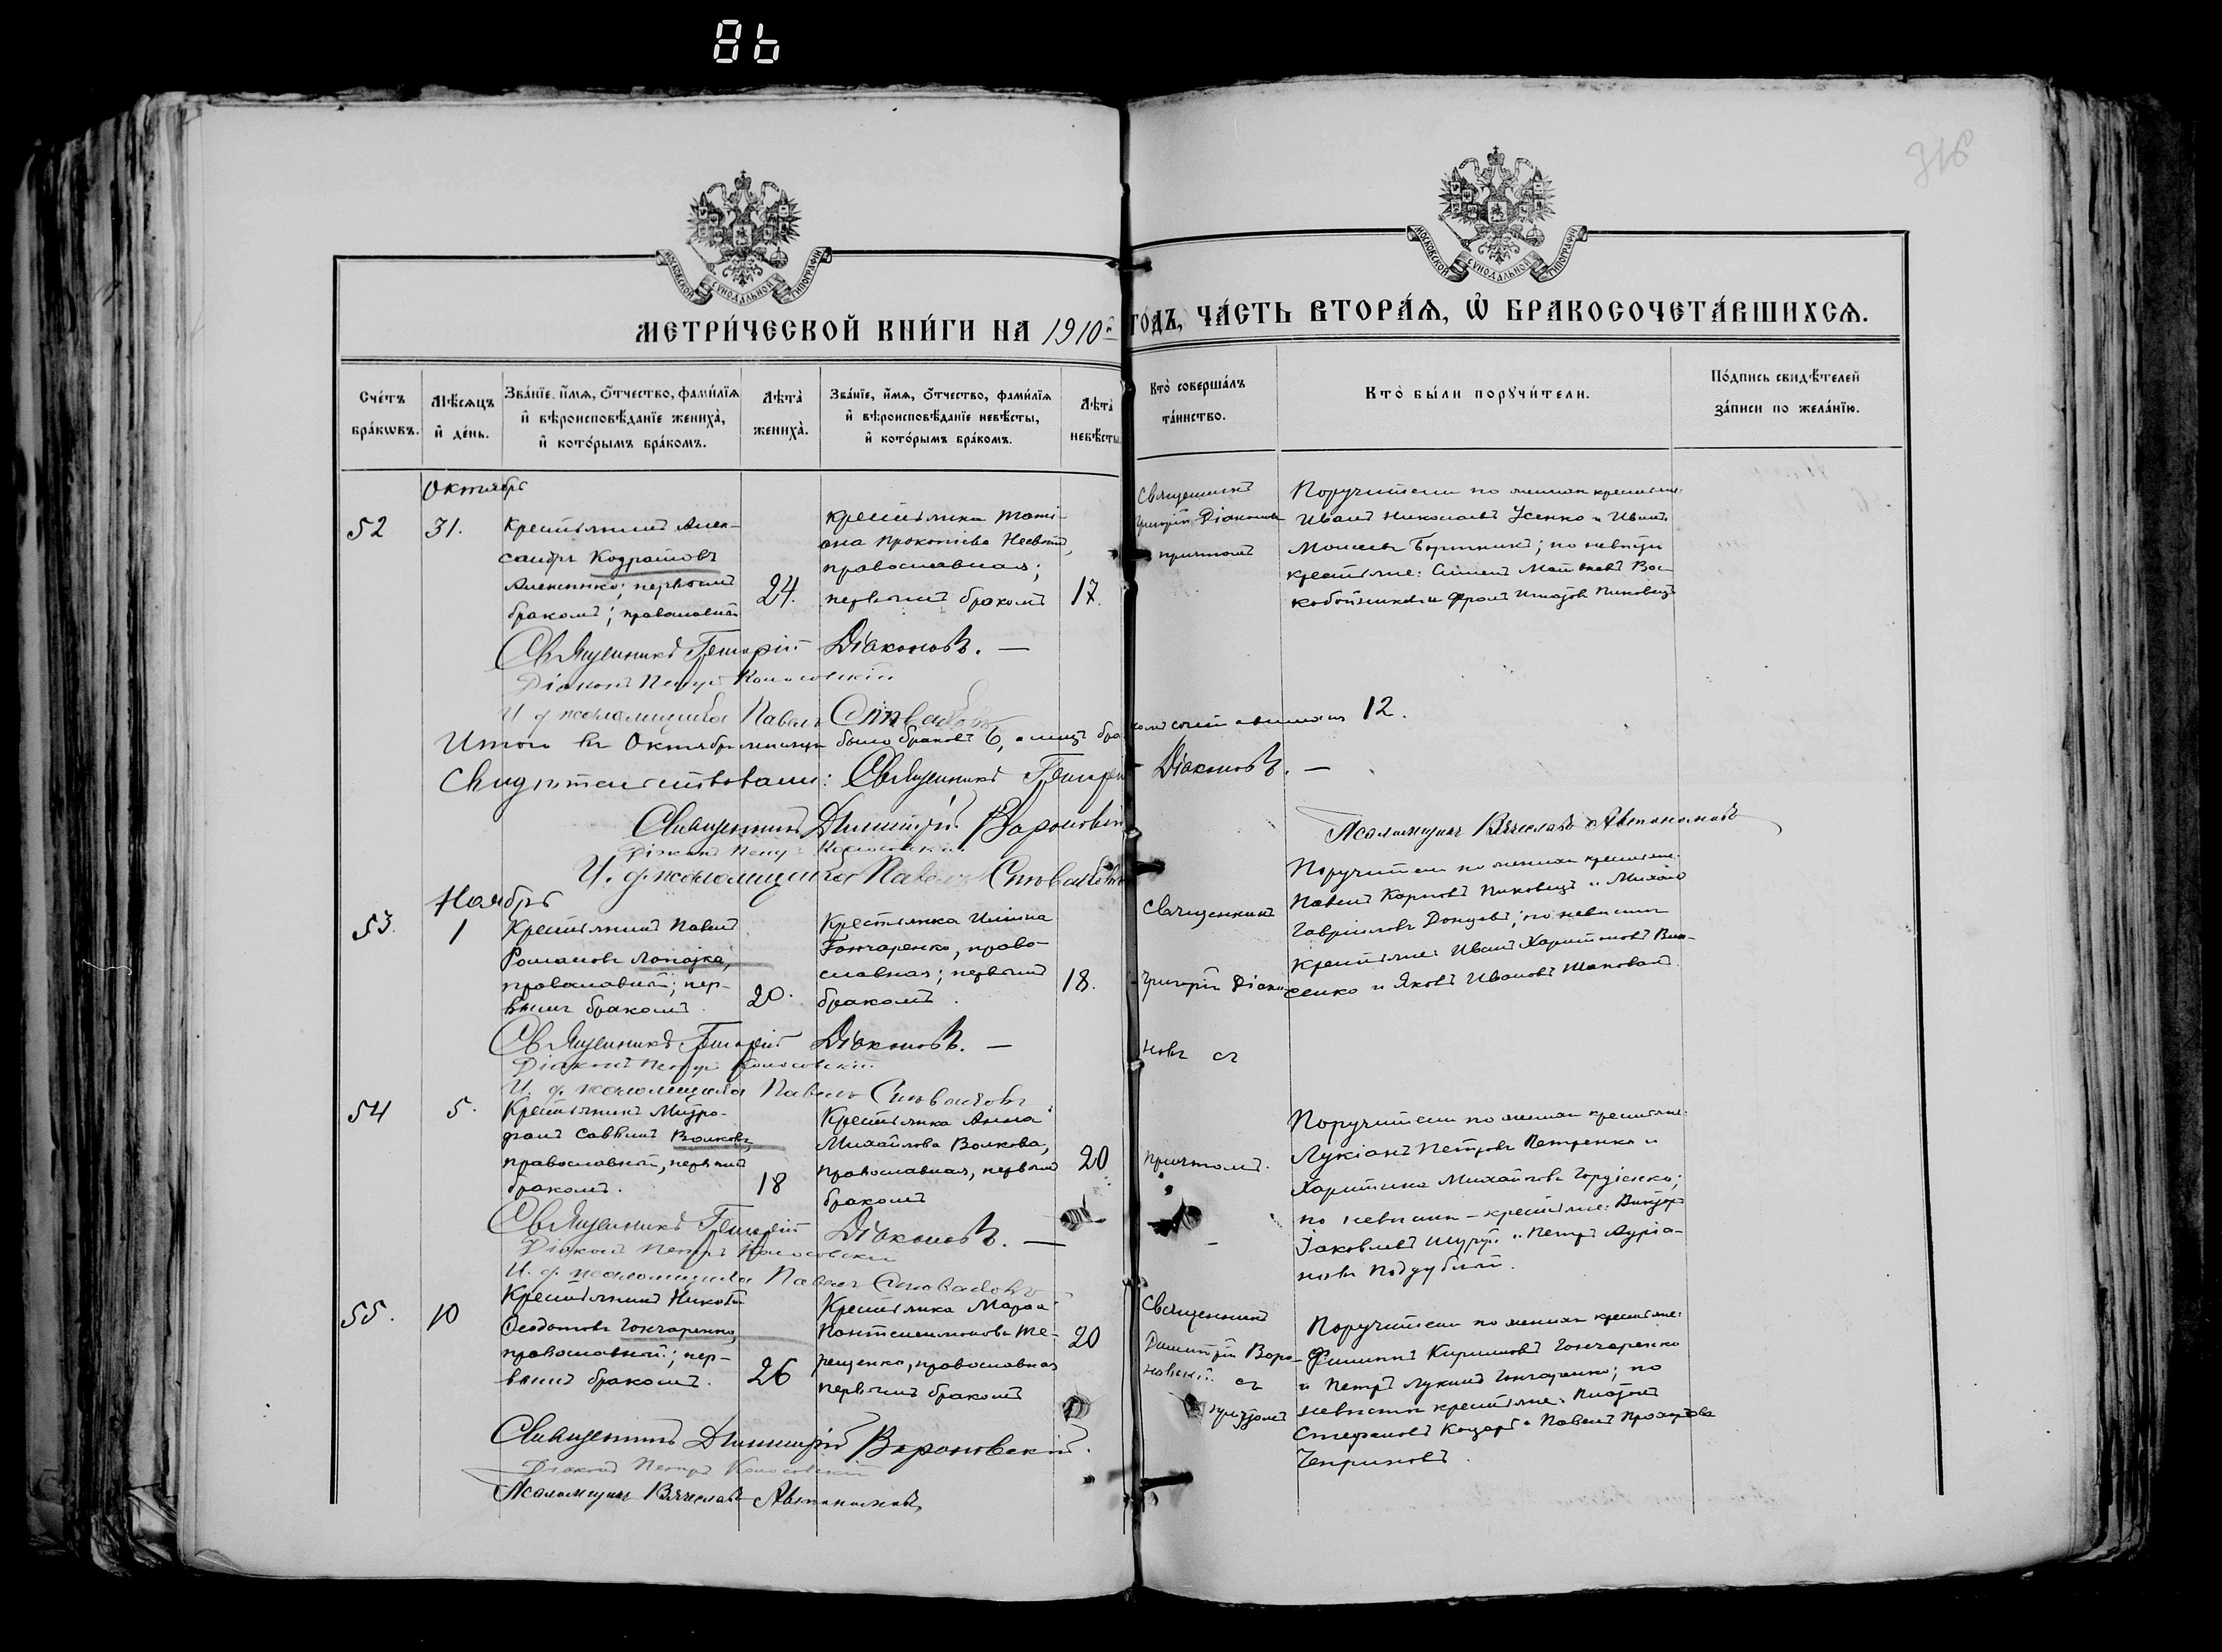 86
318
МОСКОВСКОЙ СУНОДАЛЬНОЙ ТИПОГРАФІИ
МОСКОВСКОЙ СУНОДАЛЬНОЙ ТИПОГРАФІИ
МЕТРИ́ЧЕСКОЙ КНИ́ГИ НА 1910 й ГО́ДЪ, ЧА́СТЬ ВТОРА́Ѧ, Ѡ҆ БРАКОСОЧЕТА́ВШИХСѦ.
Сче́тъ бра́кѡвъ.
Мѣ́сѧцъ и҆ де́нь.
Зва́нїе, и҆́мѧ, ѻ҆́тчество, фами́лїѧ и҆ вѣроисповѣ́данїе жениха̀, и҆ кото́рымъ бра́комъ.
Лѣ́та̀ жениха̀.
Зва́нїе, и҆́мѧ, ѻ҆́тчество, фами́лїѧ и҆ вѣроисповѣ́данїе невѣ́сты, и҆ кото́рымъ бра́комъ.
Лѣ́та̀ невѣ́сты
Кто̀ соверша́лъ та́инство.
Кто̀ бы́ли порꙋчи́тели.
По́дпись свидѣ́телей за́писи по жела́нїю.
Октябрь
52
31.
Крестьянинъ Алек-
сандръ Кодратовъ
Алексенко; первымъ
бракомъ; православный
24.
Крестьянка Тати-
ана Прокопіева
православная;
первымъ бракомъ
17.
Священникъ
Григорій Діаконовъ
причтомъ
Поручители по женихѣ крестьяне:
Иванъ Николаевъ Усенко и Иванъ
Моисеевъ Бортникъ; по невѣстѣ
крестьяне: Симеонъ Матвѣевъ Вос-
кобойникъ и Фролъ Игнатовъ Пиковецъ
Священникъ Григорій Діаконовъ. —
Діаконъ Петръ Колосовскій
И. д. псаломщика Павелъ
Итого въ Октябрѣ мѣсяцѣ было браковъ 6, а лицъ бракосочетавшихся 12.
Свидѣтельствовали: Священникъ Григорій Діаконовъ. —
Священникъ Димитрій Вороновскій
Псаломщикъ Вячеславъ Автономовъ
Діаконъ Петръ Колосовскій
И. д. псаломщика Павелъ
Ноябрь
53.
1
Крестьянинъ Павелъ
Романовъ Лопатка,
православный; пер-
вымъ бракомъ.
20.
Крестьянка
Гончаренко, право-
славная; первымъ
бракомъ.
18.
Священникъ
Григорій Діако-
новъ съ
Поручители по женихѣ крестьяне:
Павелъ Карповъ Пиковецъ и Михаилъ
Гавріиловъ Донцевъ; по невѣстѣ
крестьяне: Иванъ Харитоновъ Вла-
сенко и Яковъ Ивановъ Шаповалъ.
Священникъ Григорій Діаконовъ. —
Діаконъ Петръ Колосовскій
И. д. псаломщика Павелъ
54
5.
Крестьянинъ Митро-
фанъ Саввинъ Волковъ,
православный, первымъ
бракомъ.
18
Крестьянка Анна
Михайлова Волкова,
православная, первымъ
бракомъ
20
причтомъ.
Поручители по женихѣ крестьяне:
Лукіанъ Петровъ Петренко и
Харитина Михайлова Гордіенко;
по невѣстѣ — крестьяне: Викторъ
Іаковлевъ Шуруй и Петръ Адріа-
новъ Поддубный.
Священникъ Григорій Діаконовъ. —
Діаконъ Петръ Колосовскій
И. д. псаломщика Павелъ
55.
10
Крестьянинъ Никита
Ѳеодотовъ Гончаренко,
православный; пер-
вымъ бракомъ.
26
Крестьянка Марѳа
Пантелеимонова Те-
рещенко, православная
первымъ бракомъ
20
Священникъ
Димитрій Воро-
новскій съ
причтомъ
Поручители по женихѣ крестьяне:
Филиппъ Кирилловъ Гончаренко
и Петръ Лукинъ Гончаренко; по
невѣстѣ крестьяне: Платонъ
Стефановъ Коцарь и Павелъ
Чеприновъ.
Священникъ Димитрій Вороновскій.
Діаконъ Петръ Колосовскій
Псаломщикъ Вячеславъ Автономовъ